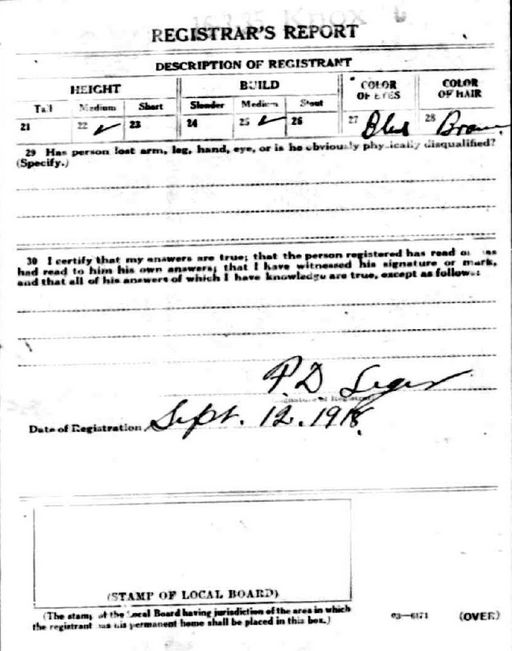 REGISTRAR'S REPORT
DESCRIPTION OF REGISTRANT
HEIGHT BUILD COLOR OF EYES COLOR OF HAIR
Tall Medium Short Slender Medium Stout
21 22 ✓ 23 24 25 ✓ 26 27 Blue 28 Brown
29 Has person lost arm, leg, hand, eye, or is he obviously physically disqualified?
(Specify.)
30 I certify that my answers are true; that the person registered has read or has
had read to him his own answers; that I have witnessed his signature or mark,
and that all of his answers of which I have knowledge are true, except as follows:
P. D.
Date of Registration Sept. 12, 1918
(STAMP OF LOCAL BOARD)
(The stamp of the Local Board having jurisdiction of the area in which
the registrant has his permanent home shall be placed in this box.)
03—6171 (OVER)